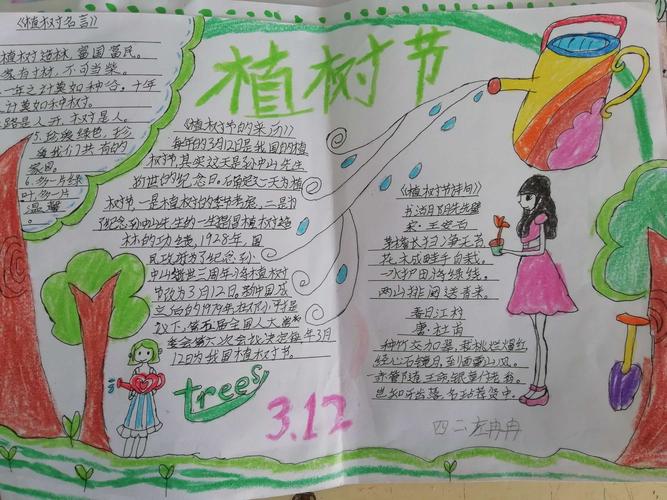 《植树名言》
植树造林,富国富民。
家有寸材,不可当柴。
一年之计莫如种谷,十年
之计莫如种树。
路是人开,树是人
5.珍惜绿色,珍
惜我们共有的
家园。
6.多一片绿
叶,多一片
温馨
植树节
《植树节的来历》
每年的3月12日是我国的植
树节,其实这天是孙中山先生
逝世的纪念日。确定这一天为植
树节一是植树的季节考虑,二是为
了纪念孙中山先生的一生提倡植树造
林的功绩,1928年,国
民政府为了纪念孙
中山逝世三周年,将植树
节改为3月12日。新中国成
立后的1979年,在邓小平提
议下,第五届全国人大常
委会第六次会议决定每年3月
12日为我国植树节。
trees
3.12
《植树节诗句》
书湖阴先生壁
宋:王安石
茅檐长扫净无苔
花木成畦手自栽
一水护田将绿绕
两山排闼送青来。
春日江村
唐:杜甫
种竹交加翠,栽桃烂熳红
经心石镜月,到面雪山风。
赤管随王命,银章付老翁。
岂知牙齿落,名玷荐贤中。
四二 左冉冉